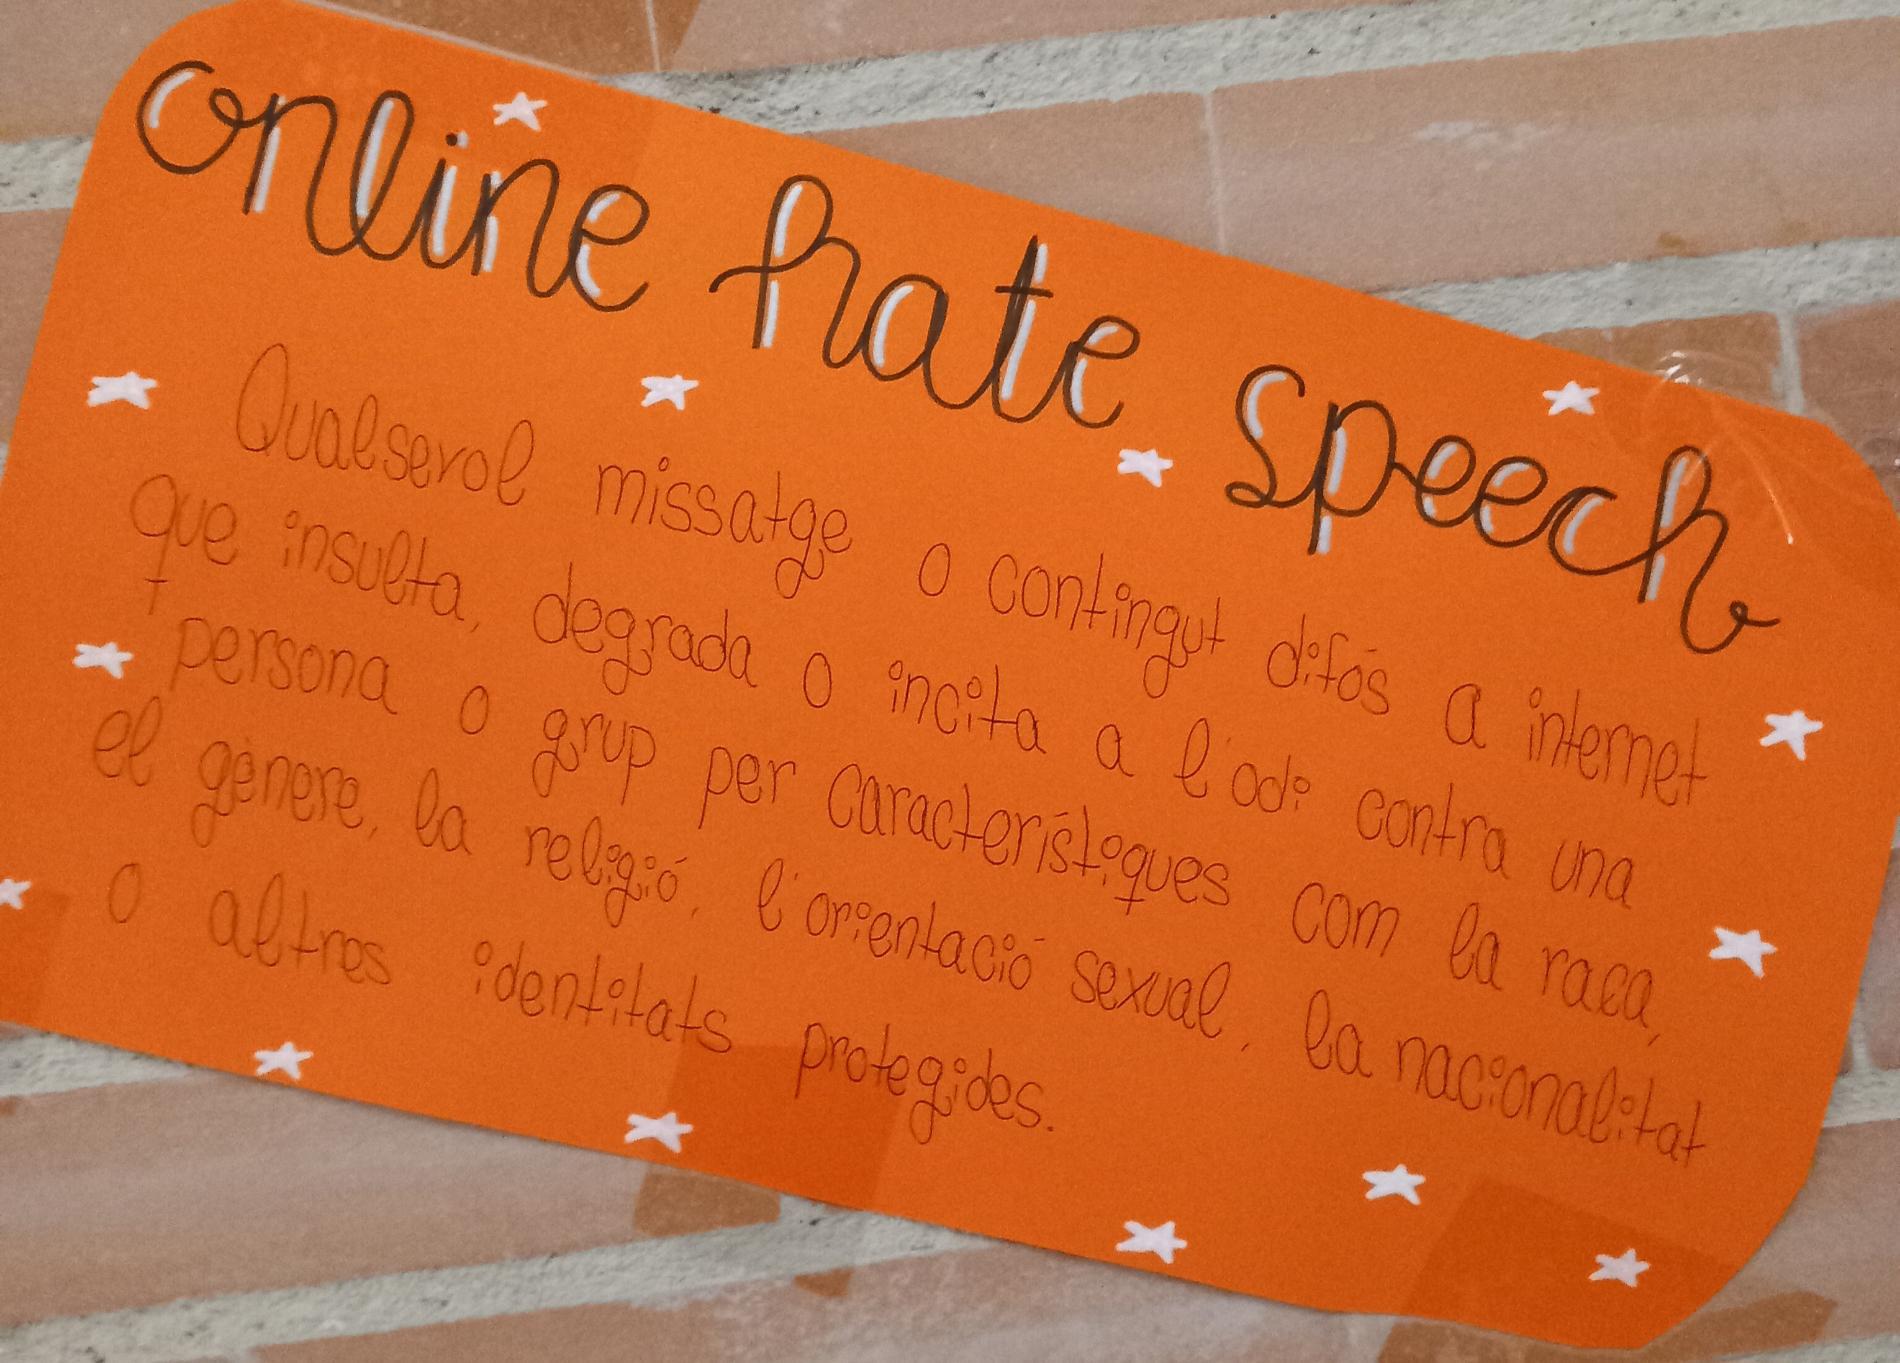 online hate speech
Qualsevol missatge o contingut difós a internet
que insulta, degrada o incita a l'odi contra una
persona o grup per característiques com la raça,
el gènere, la religió, l'orientació sexual, la nacionalitat
o altres identitats protegides.